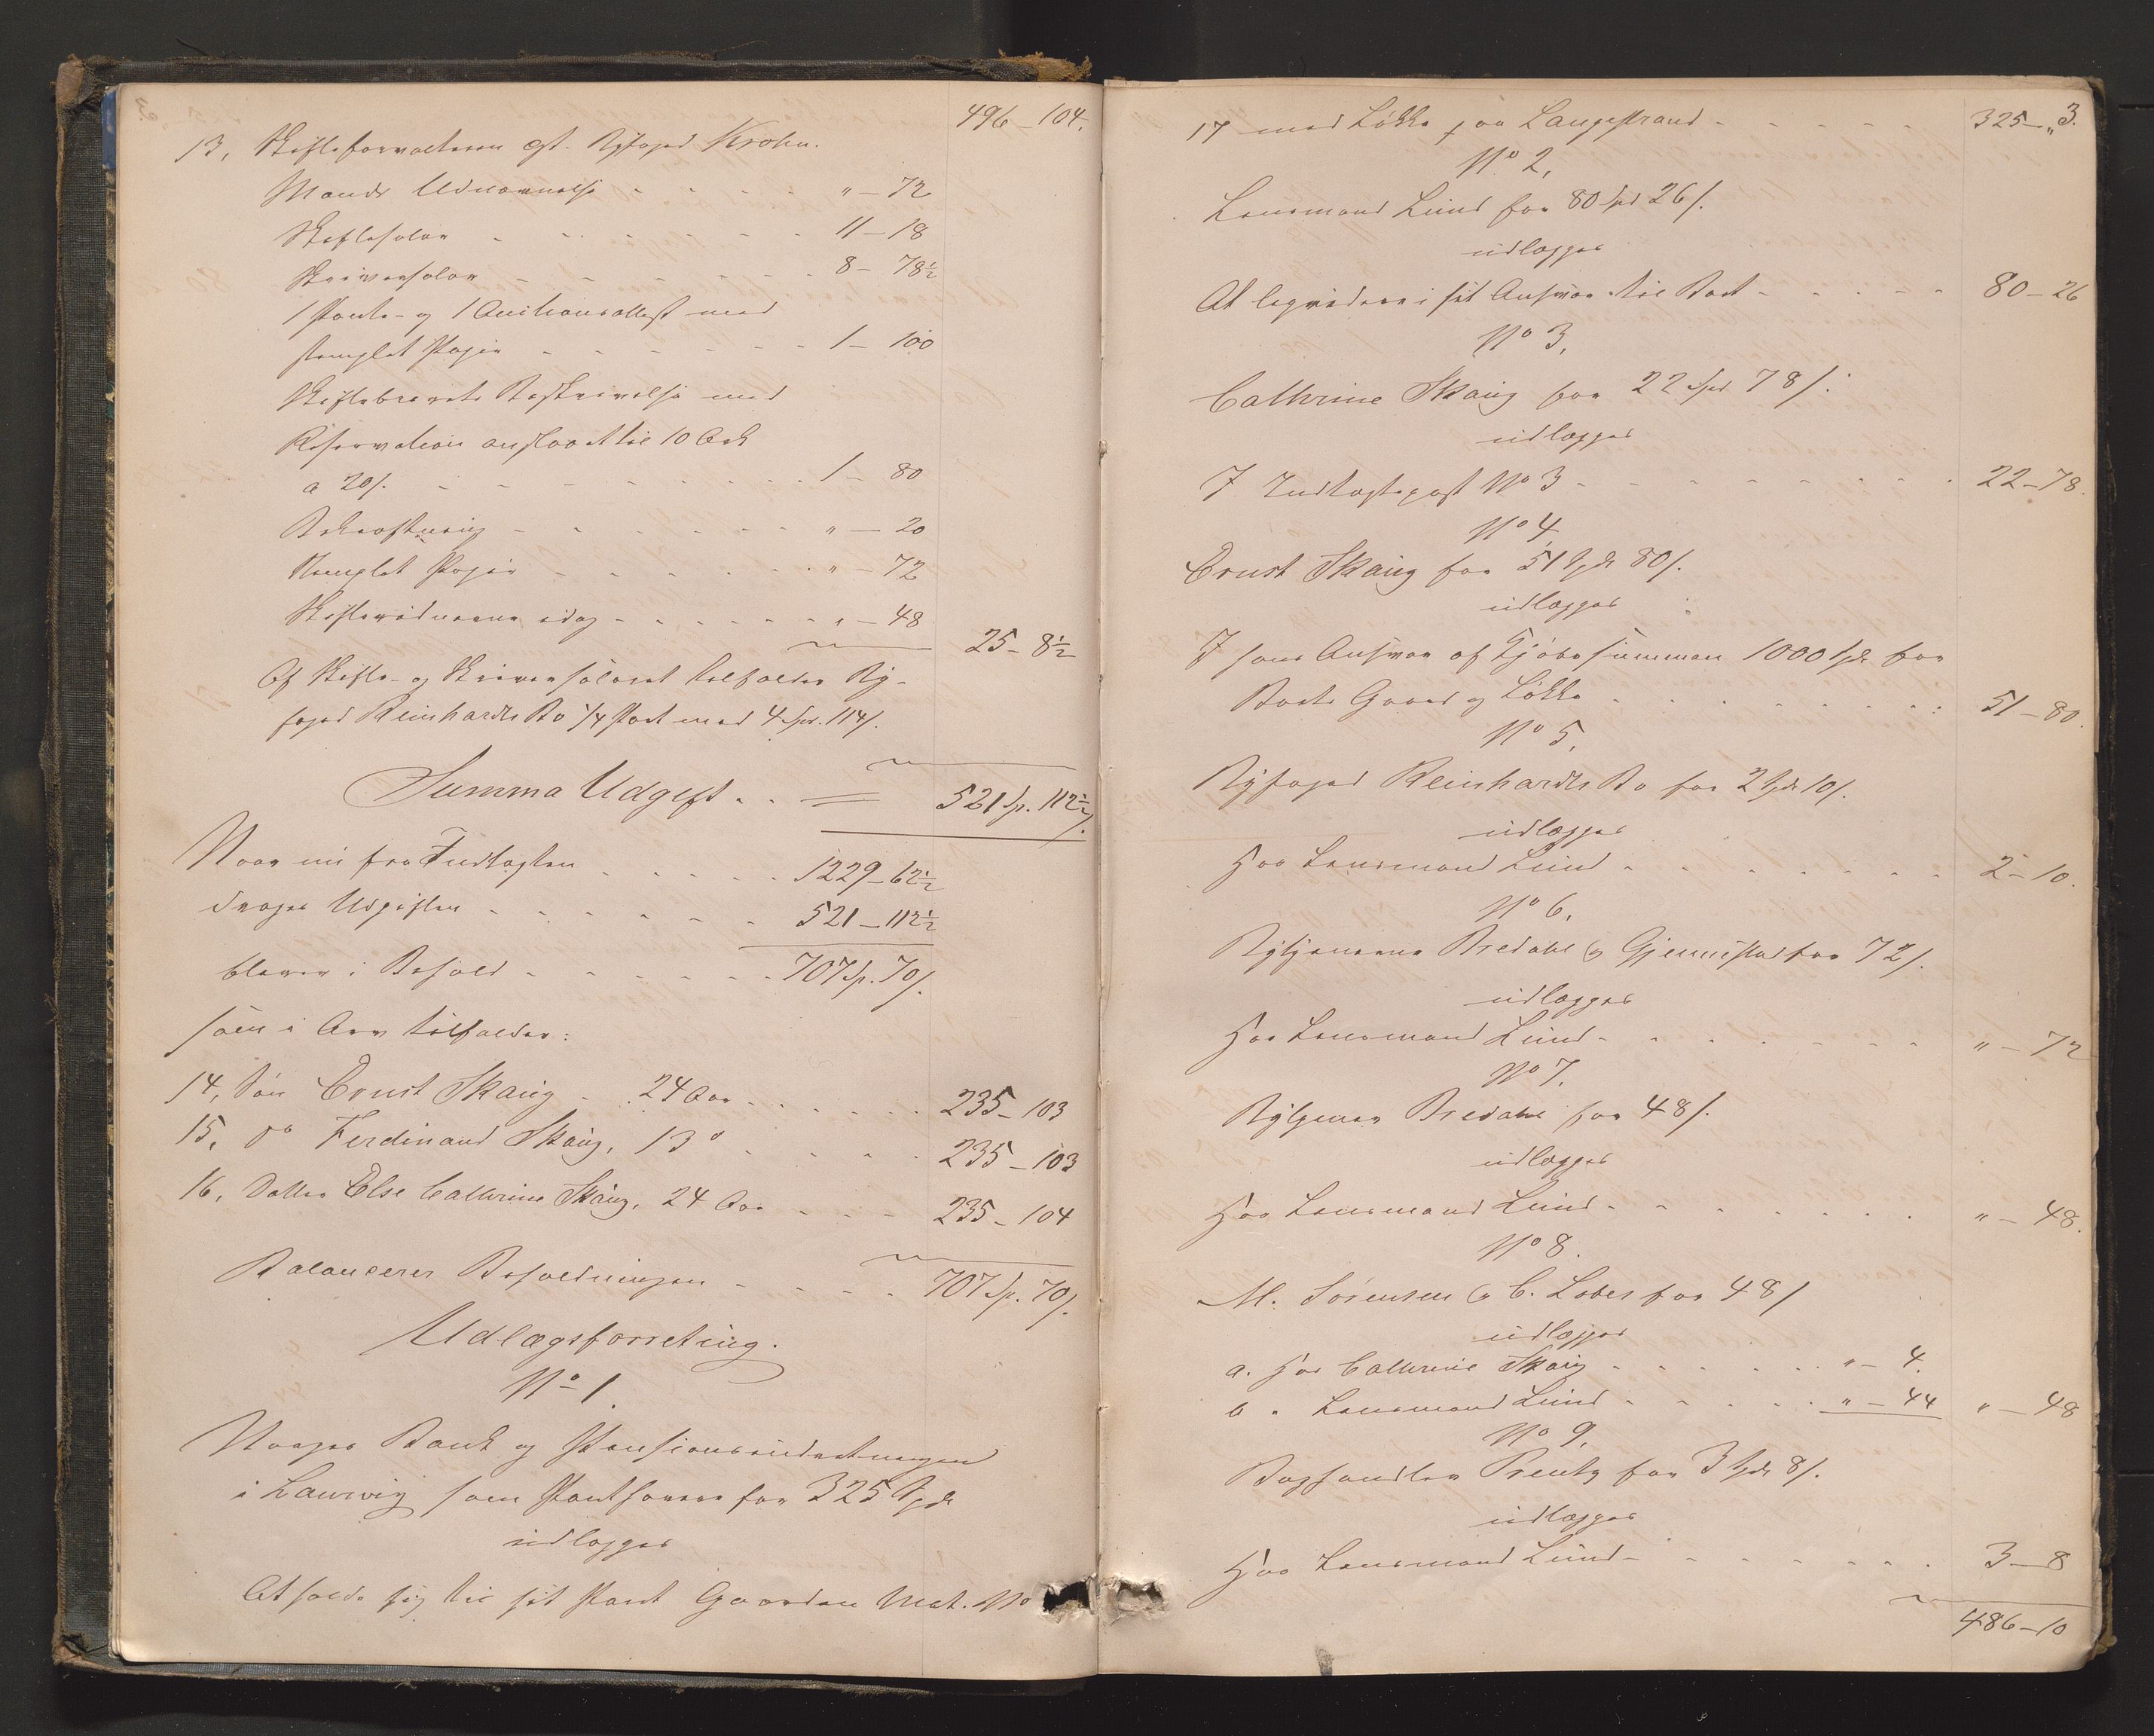 496 – 104.
13, Skifteforvalteren cst. Byfoged Krohn.
Mænds Udnævnelse - - - - „ – 72
Skiftesalær - - - - - - 11 – 18
Skriversalær - - - - - - 8 – 78½
1 Pante- og 1 Auctionsattest med
stemplet Papir - - - - - - 1 – 100
Skiftebrevets Beskrivelse med
Reservation anslaaet til 10 Ark
a 20 s. - - - - - - - 1 – 80
Bekræftning - - - - - - „ – 20
Stemplet Papir - - - - - - „ – 72
Skiftevidnerne idag - - - - - „ – 48
25 – 8½
Af Skifte- og Skriversalæret tilfalder By-
foged Reinhardts Bo ¼ Part med 4 Spd. 114 s.
Summa Udgift . . = 521 Sp. 112½ s.
Naar nu fra Indtægten . . . . . 1229 – 62½
drages Udgiften - - - - - - 521 – 112½
bliver i Behold - - - - - - 707 Sp. 70 s.
som i Arv tilfalder:
14, Søn Ernst Skaug - . 24 Aar . . . . . . 235 – 103
15, do Ferdinand Skaug, 13 " . . . . 235 – 103
16, Datter Else Cathrine Skaug, 24 Aar - - - 235 – 104
Balancerer Beholdningen - - - - 707 Sp. 70 s.
Udlægsforretning.
No 1.
Norges Bank og Pensionsindretningen
i Laurvig som Panthavere for 325 Spd
udlægges
At holde sig til sit Pant Gaarden Mat. No
3.
17 med Løkke paa Langestrand - - - - - 325 – „
No 2,
Lensmand Lund for 80 Spd 26 s.
udlægges
At liqvidere i sit Ansvar til Boet - - - - - 80 – 26
No 3,
Cathrine Skaug for 22 Spd 78 s.
udlægges
I Indtægtspost No 3 - - - - - - - - 22 – 78.
No 4,
Ernst Skaug for 51 Spd 80 s.
udlægges
I hans Ansvar af Kjøbesummen 1000 Spd for
Boets Gaard og Løkke - - - - - - - - 51 – 80.
No 5,
Byfoged Reinhardts Bo for 2 Spd 10 s.
udlægges
Hos Lensmand Lund - - - - - - - - 2 – 10.
No 6,
Bytjenerne Bredahl og Gjennestad for 72 s.
udlægges
Hos Lensmand Lund - - - - - - - „ – 72
No 7,
Bytjener Bredahl for 48 s.
udlægges
Hos Lensmand Lund - - - - - - - „ – 48.
No 8.
M. Sørensen og C. Lobes for 48 s
udlægges
a. hos Cathrine Skaug - - - - - - „ – 4.
b „ Lensmand Lund - - - - - „ – 44 „ – 48
No 9,
Boghandler Prentz for 3 Spd 8 s.
udlægges
Hos Lensmand Lund - - - - - - - 3 – 8
486 – 10